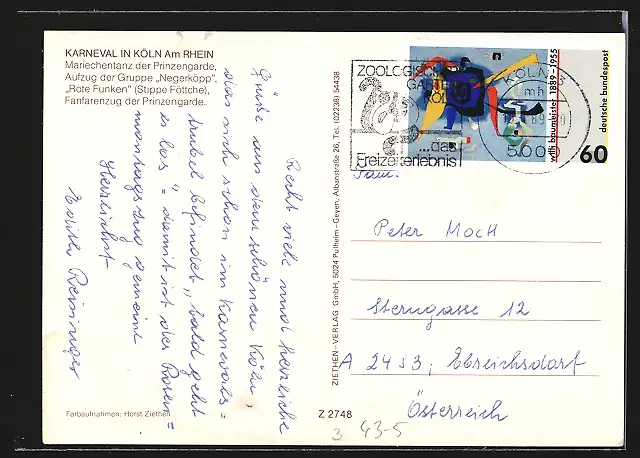 KARNEVAL IN KÖLN Am RHEIN
Mariechentanz der Prinzengarde,
Aufzug der Gruppe „Negerköpp",
„Rote Funken" (Stippe Föttche),
Fanfarenzug der Prinzengarde.
Recht viele und herzliche
Grüße aus dem schönen Köln,
das sich schon im Karnevals=
trubel befindet, „bald geht
es los" = damit ist der Rosen=
montagszug gemeint
Herzlichst
Edith Reininger
Farbaufnahmen: Horst Ziethen
ZIETHEN-VERLAG GmbH, 5024 Pulheim-Geyen, Albanstraße 26, Tel. (02238) 54438
Z 2748
3 43-5
ZOOLOGISCHER
GARTEN
KÖLN
...das
Freizeiterlebnis!
KÖLN 3
mh
500
willi baumeister 1889-1955
deutsche bundespost
60
Fam.
Peter Moch
Sterngasse 12
A 2483, Ebreichsdorf
Österreich